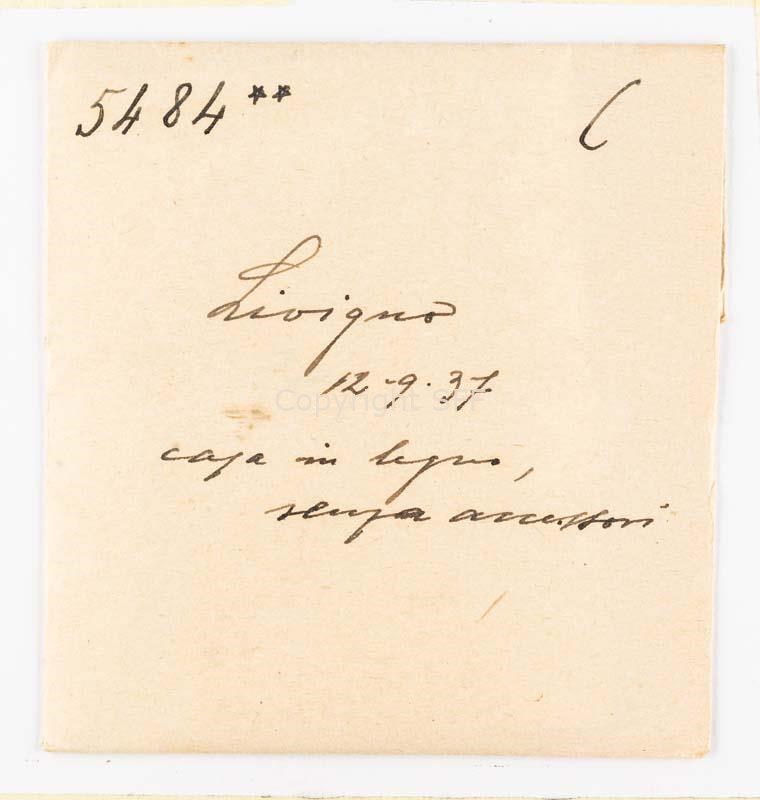 5484** C
Livigno
12-9-37
Copyright SPF
casa in legno,
senza accessori